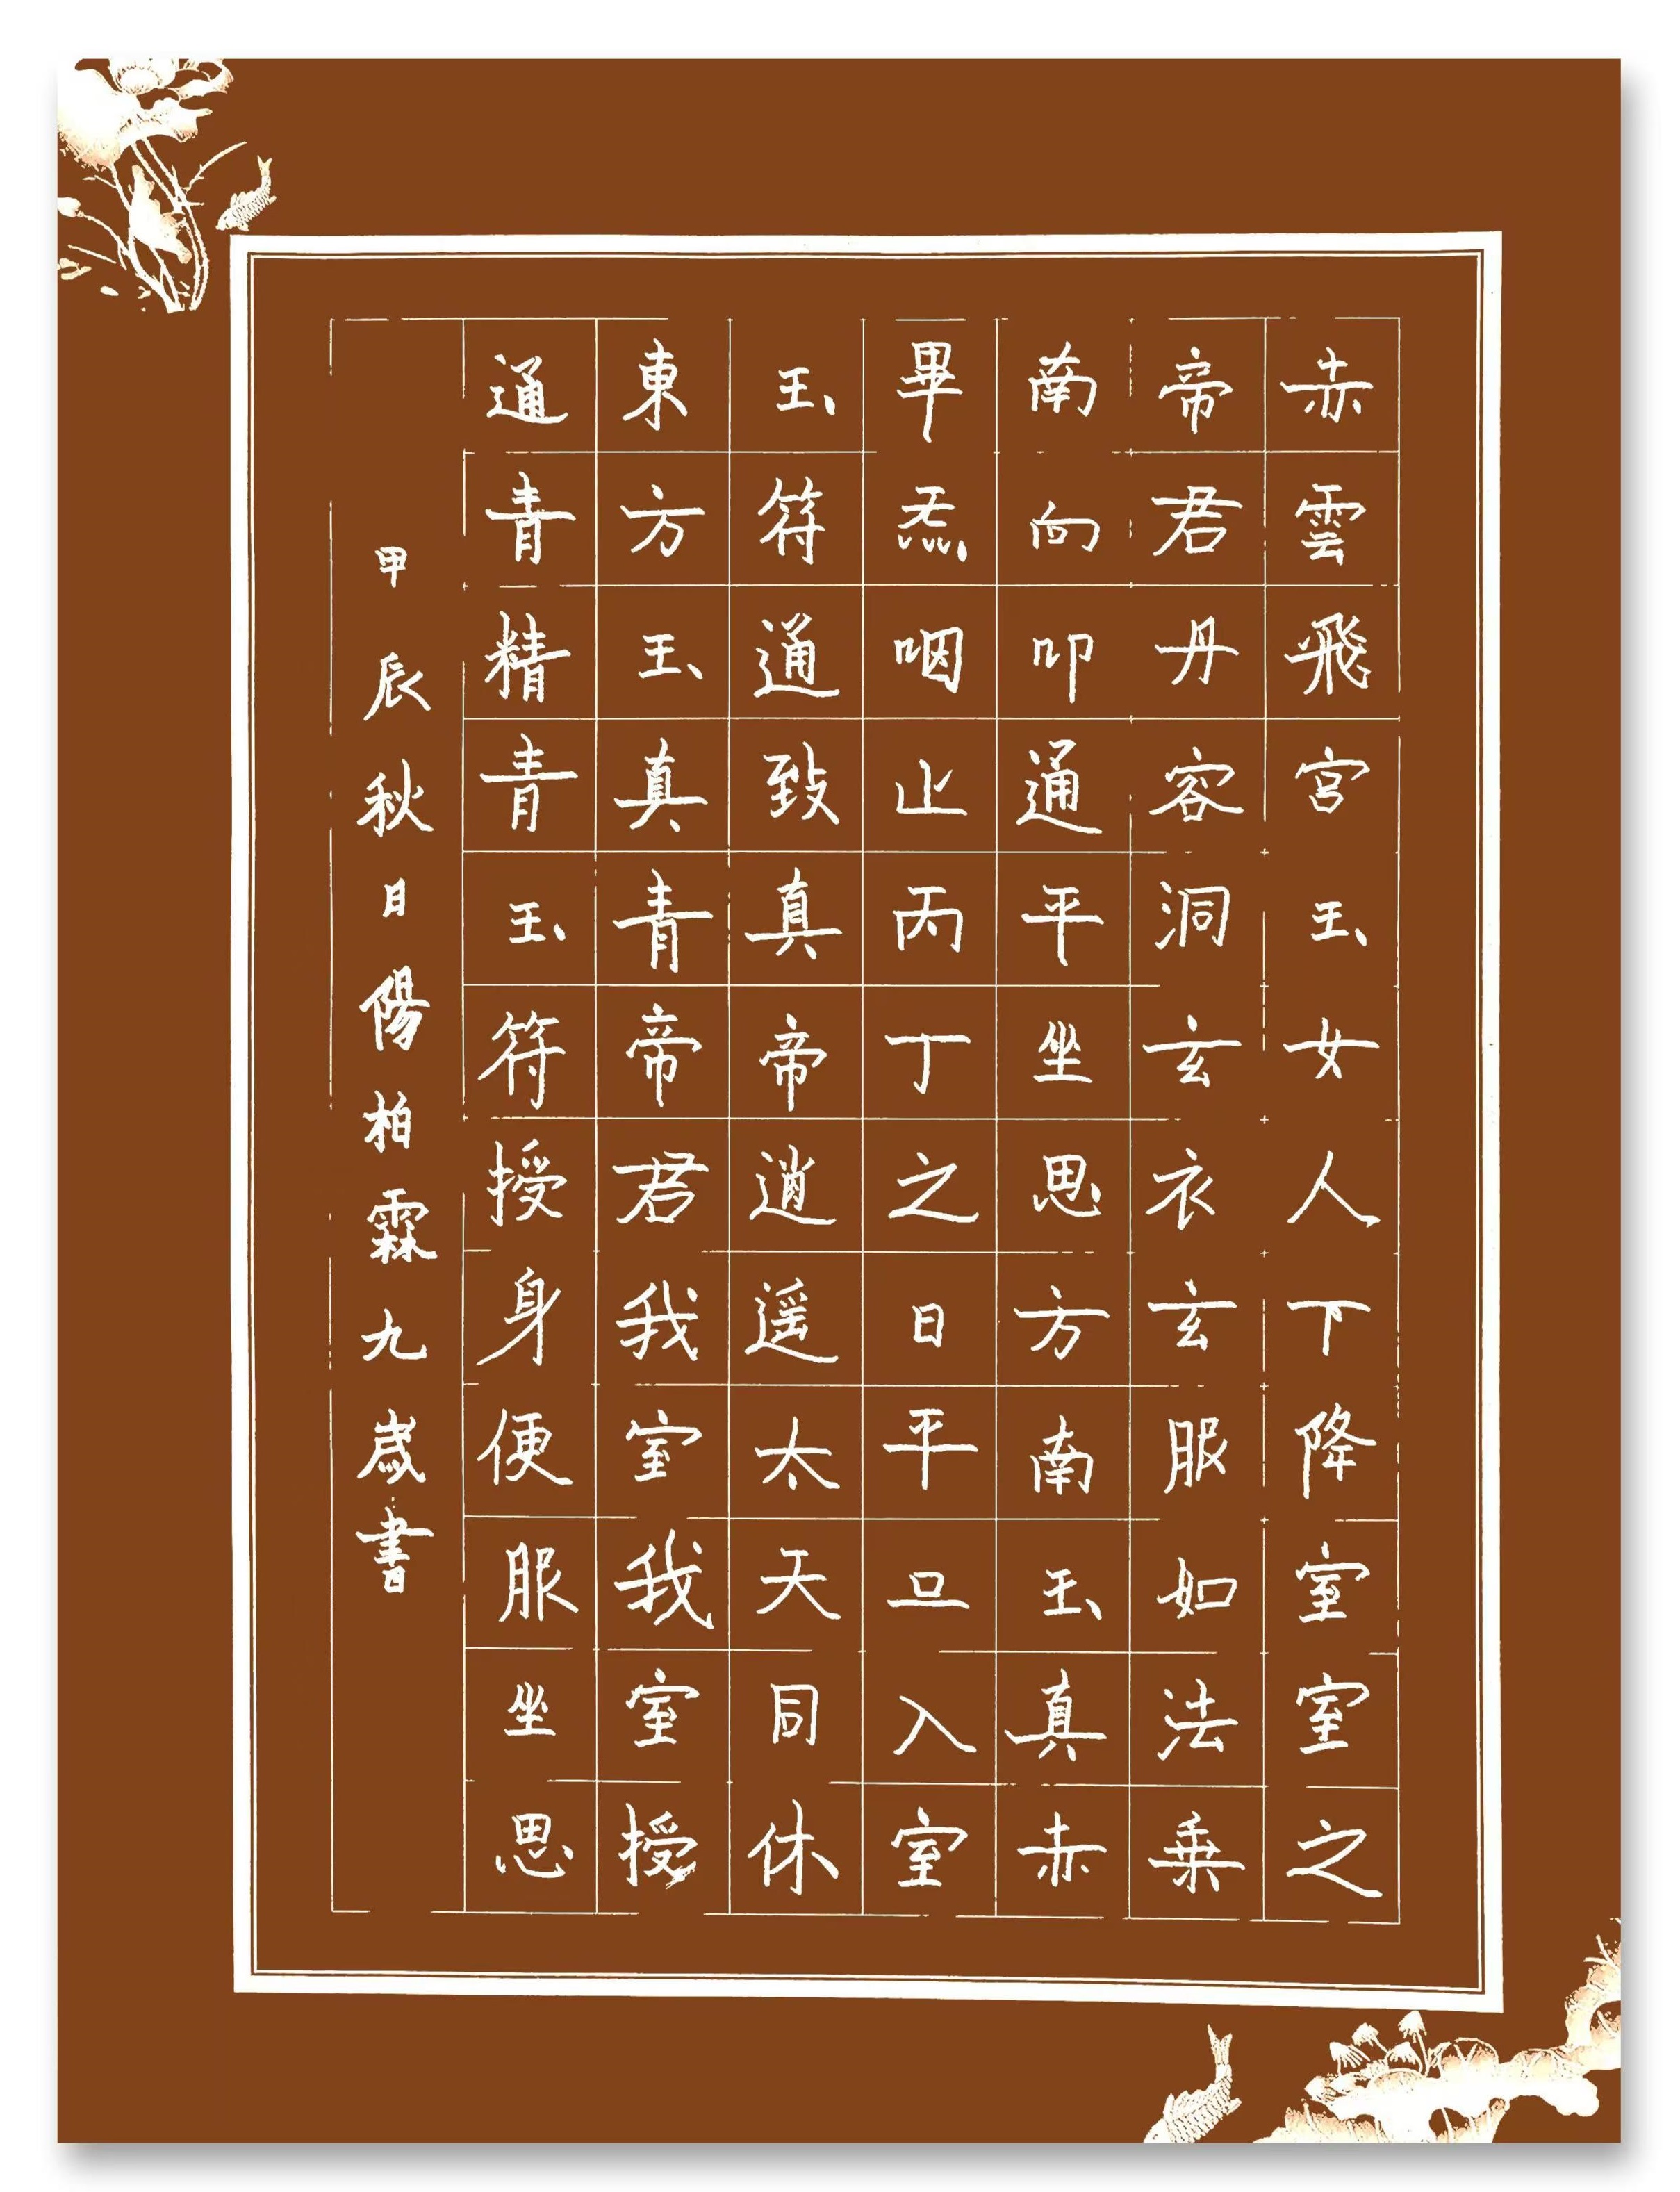 赤雲飛宮玉女人下降室室之
帝君丹容洞玄衣玄服如法乗
南向叩通平坐思方南玉真赤
畢炁咽止丙丁之日平旦入室
玉符通致真帝逍遥太天同休
東方玉真青帝君我室我室授
通青精青玉符授身便服坐思
甲辰秋日陽柏霖九歳書